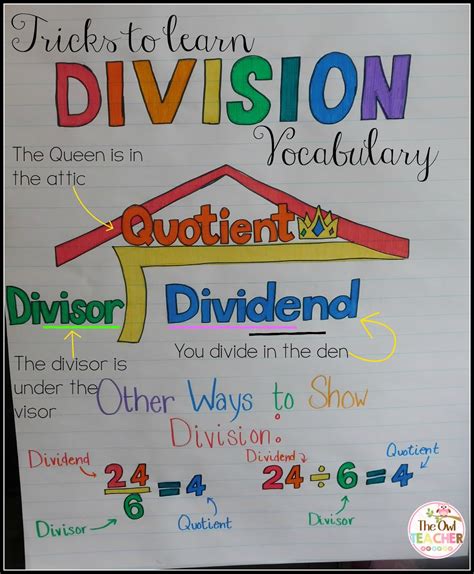 Tricks to learn
DIVISION
Vocabulary
The Queen is in
the attic
Quotient
Divisor
Dividend
The divisor is
under the
visor
You divide in the den
Other Ways to Show
Division:
Dividend
24
6
= 4
Divisor
Quotient
Dividend
Quotient
24 ÷ 6 = 4
Divisor
The Owl
TEACHER